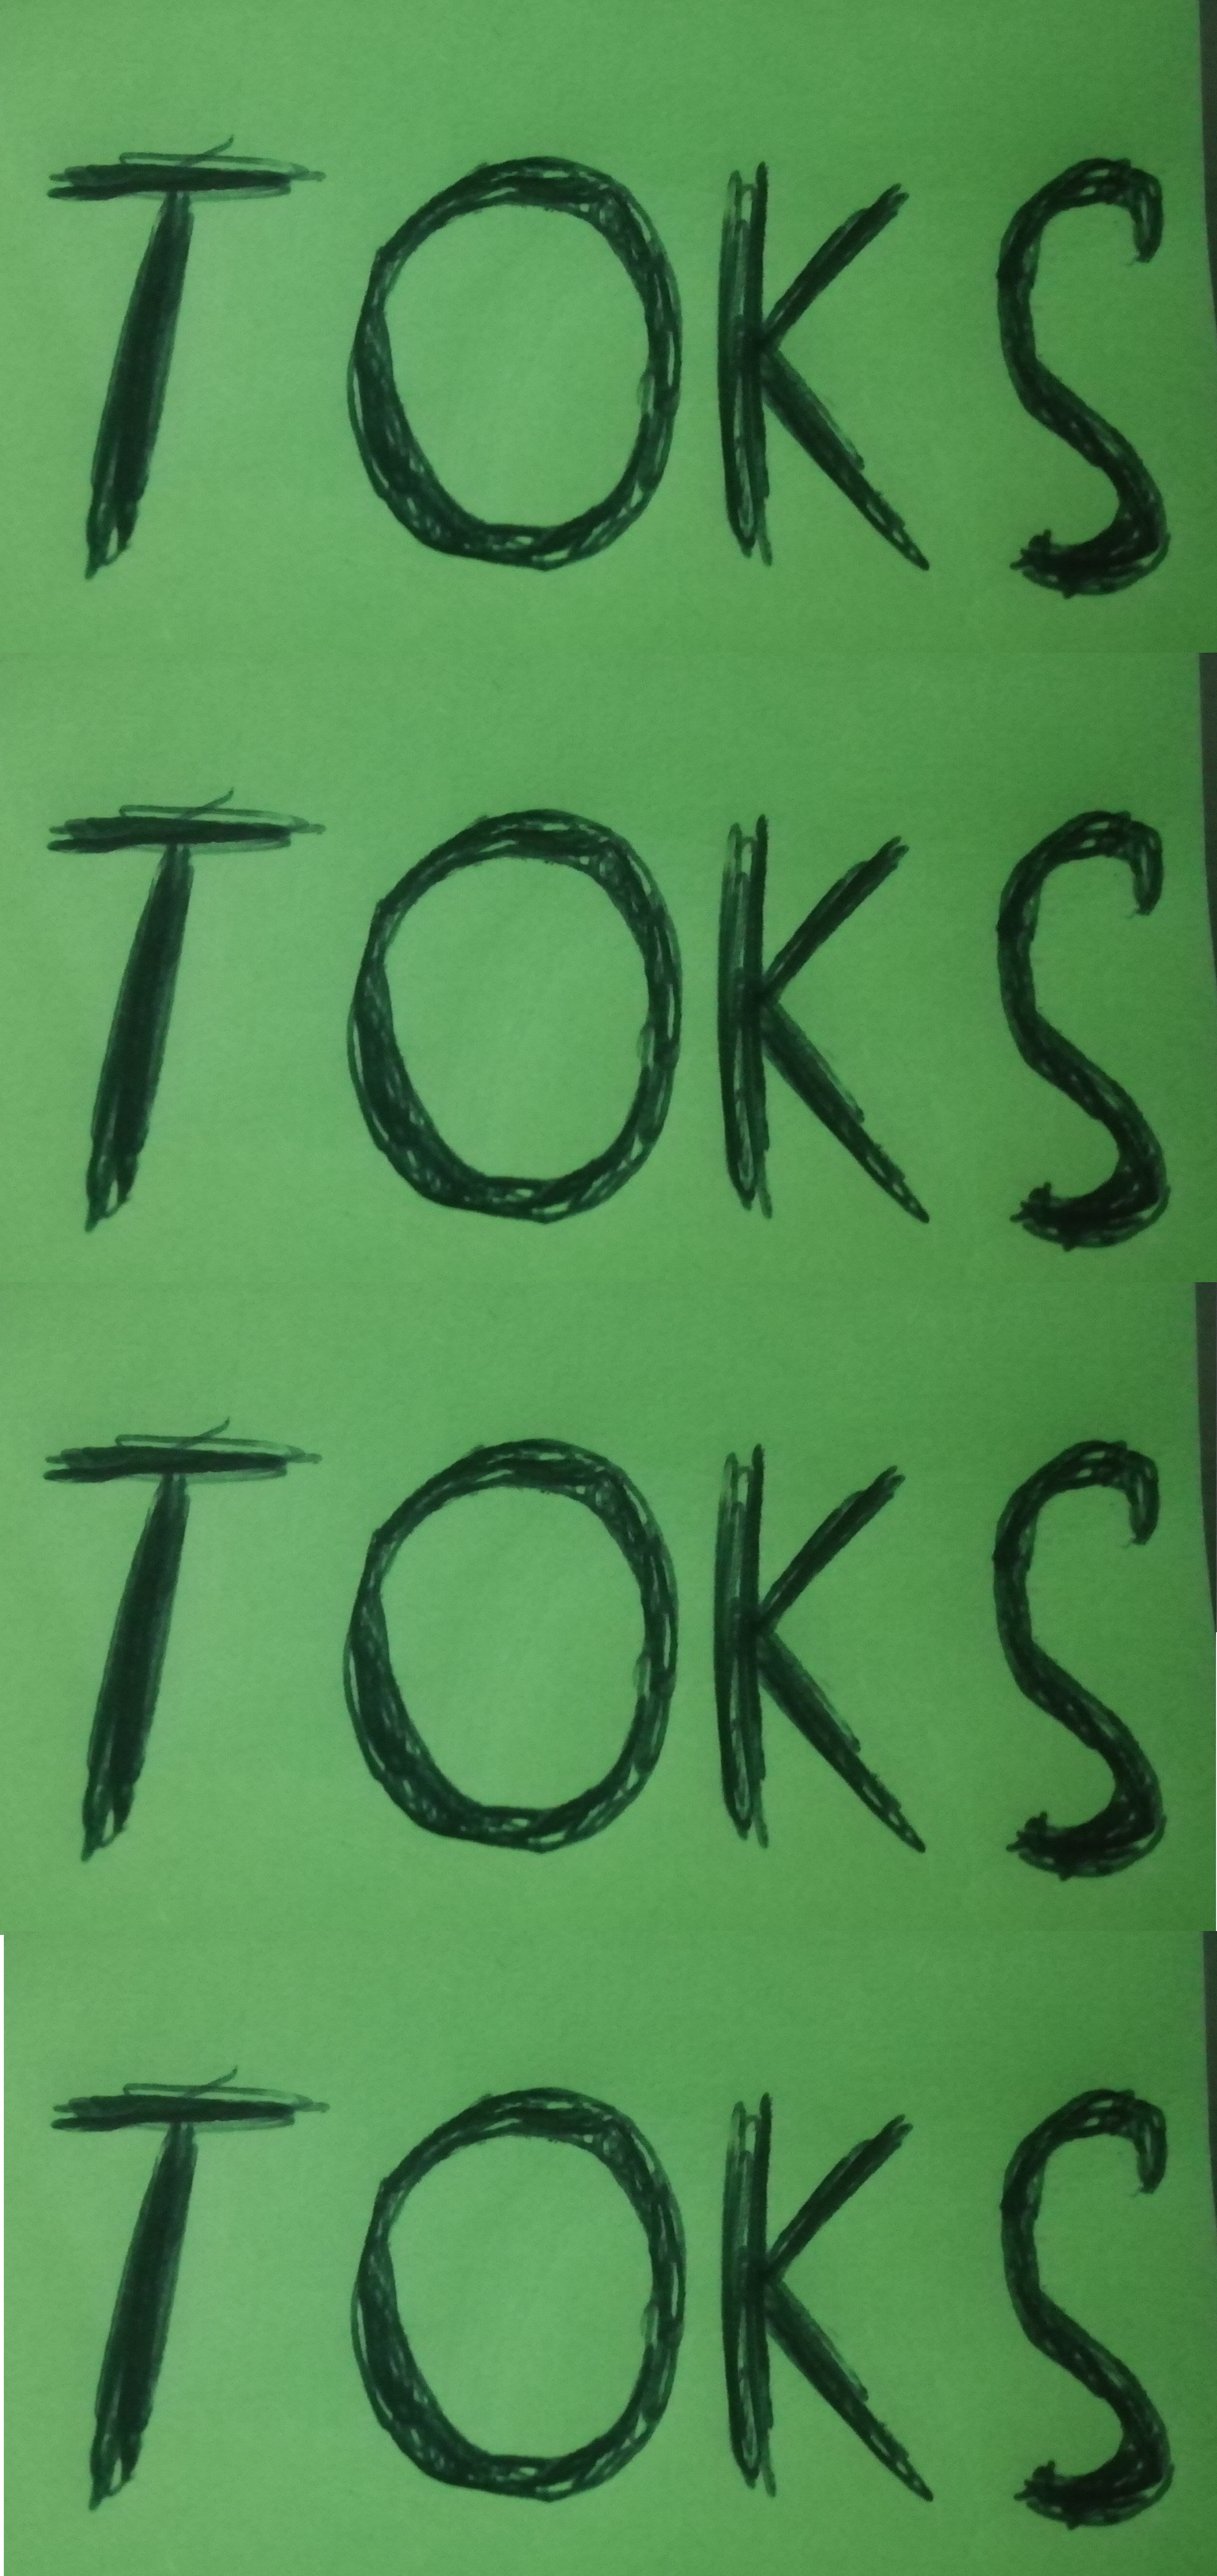 TOKS
TOKS
TOKS
TOKS